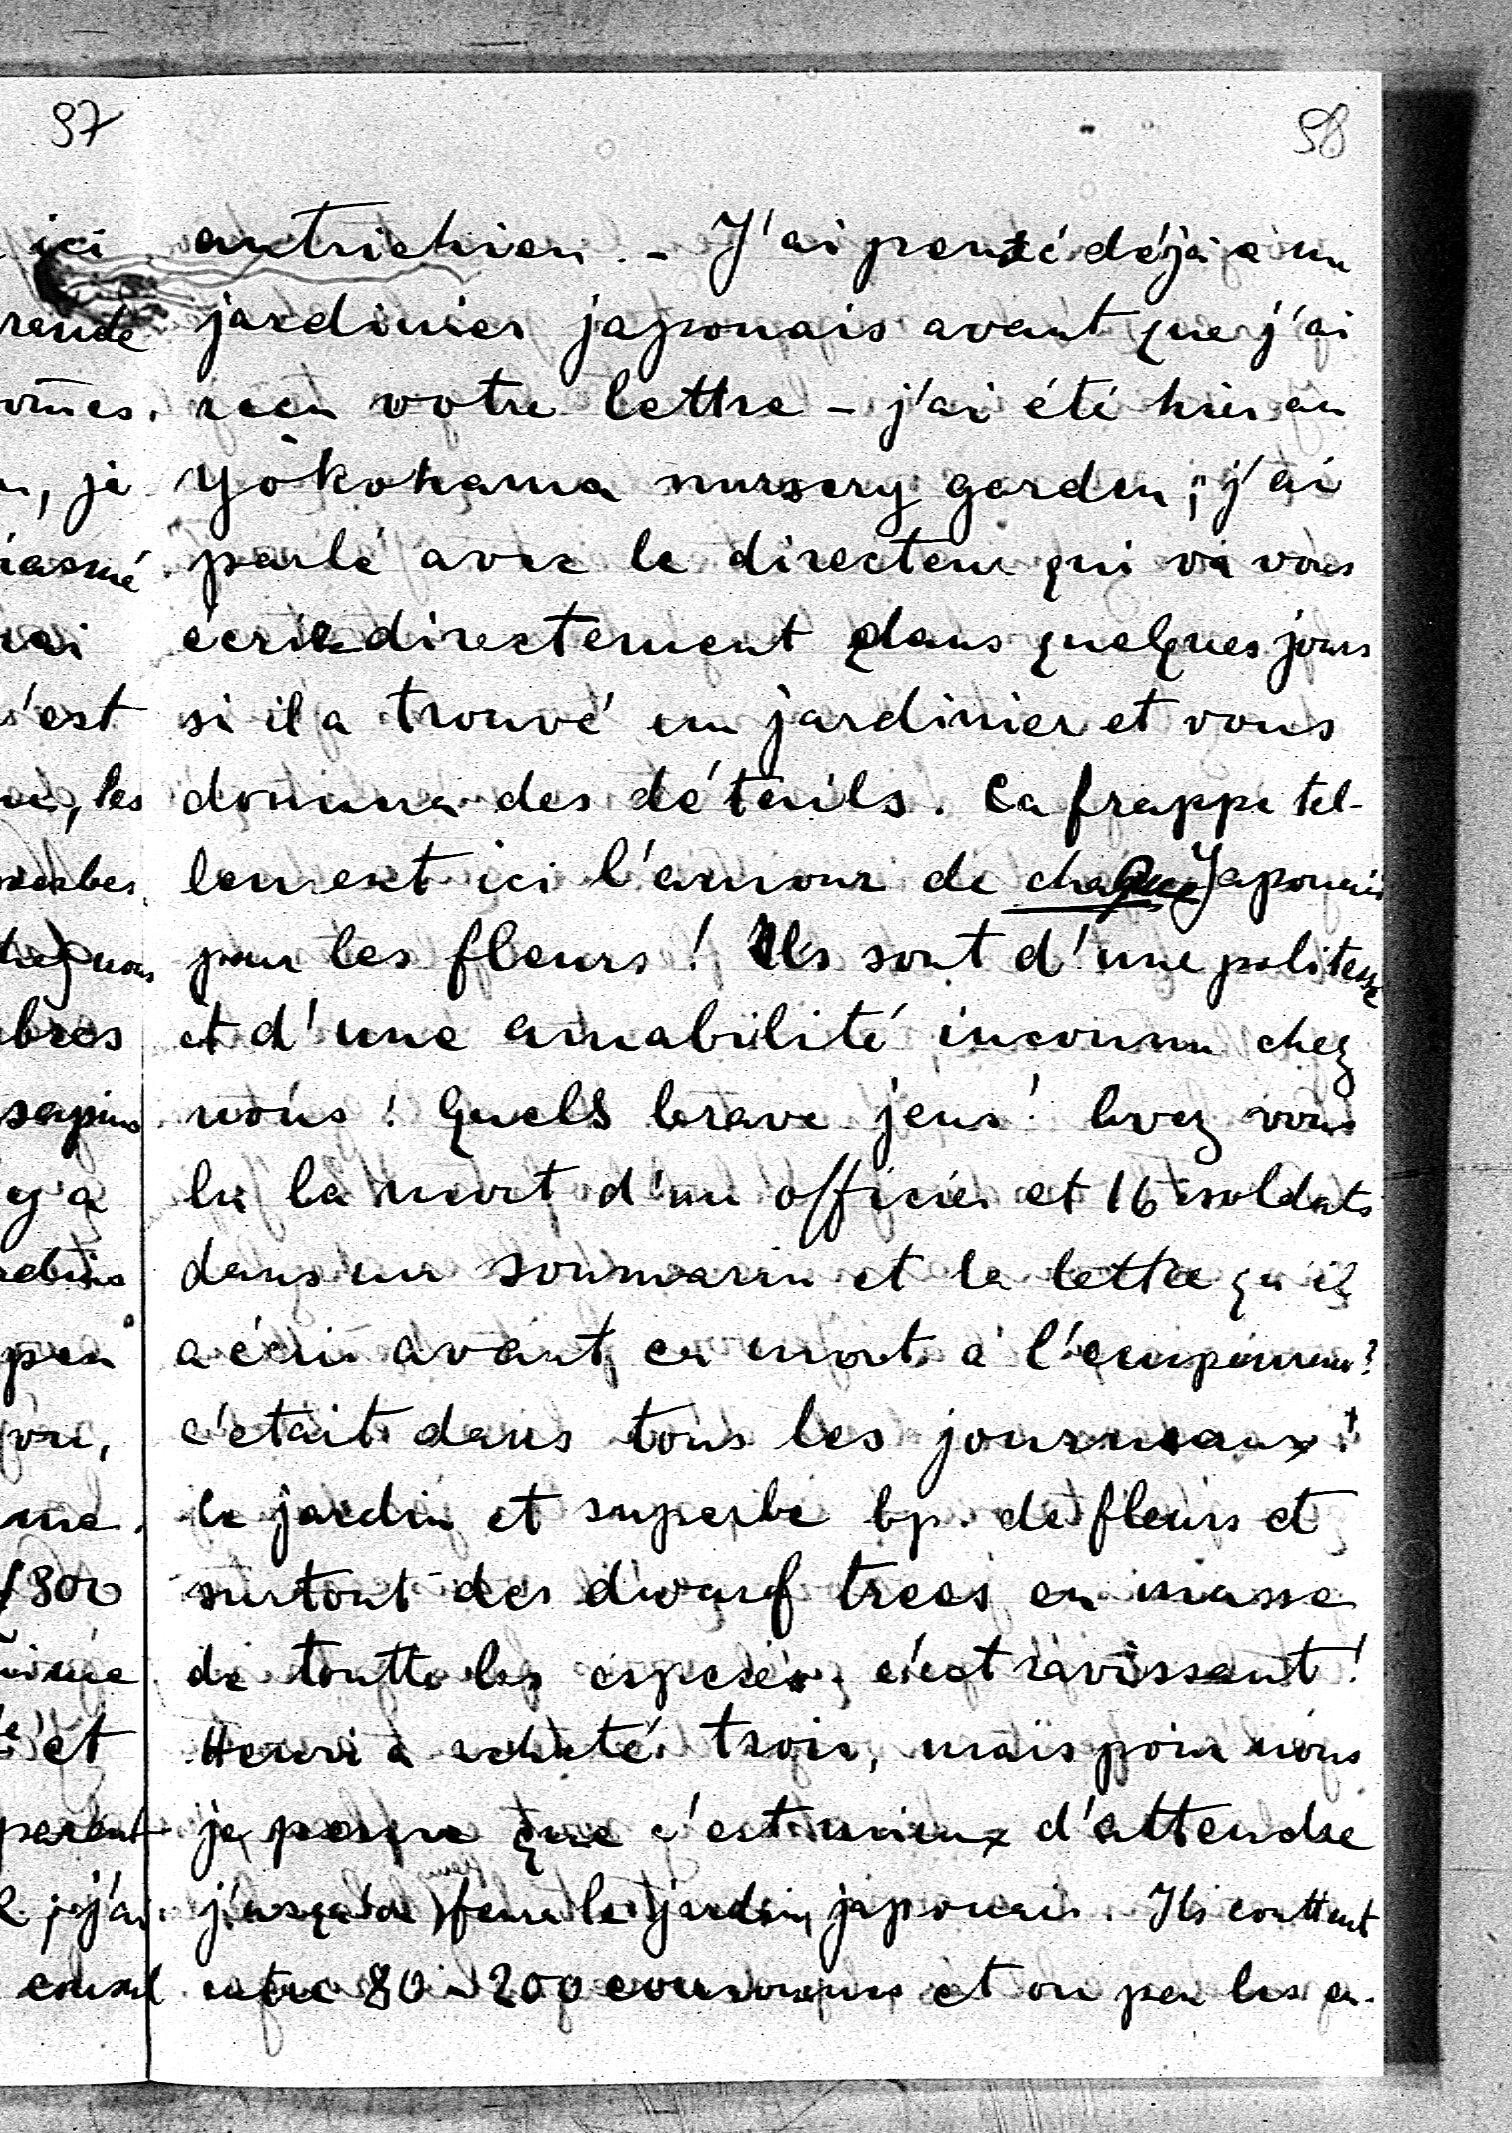 97
58
ici autrichien. – J'ai pensé déjà a un
jardinier japonais avant que j'ai
recu votre lettre – j'ai été hier au
Yokohama nursery garden, j'ai
parlé avec le directeur qui va vous
écrir directement dans quelques jours
si il a trouvé un jardinier et vous
donnera des détails. Ca frappe tel-
lement ici l'amour de chaque Japonais
pour les fleurs! Ils sont d'une politesse
et d'une amabilité inconnu chez
nous! Quels brave jens! Avez vous
lu la mort d'un officier et 16 soldats
dans un soumarin et la lettre qu'il
a écri avant ca mort à l'empereur?
c'etait dans tous les journeaux!
le jardin et superbe bp. de fleurs et
surtout des dwarf trees en masse
de toutte les especes. c'est ravissant!
Henri a acheté trois, mais pour nous
je pense que c'est mieux d'attendre
j'usqu'a le jardin japonais. Ils couttent
entre 80 – 200 couronnes et on peu les en-
rende
je
'est
les
nous
bres
sapins
y a
peu
me.
1800
et
j'ai
consul